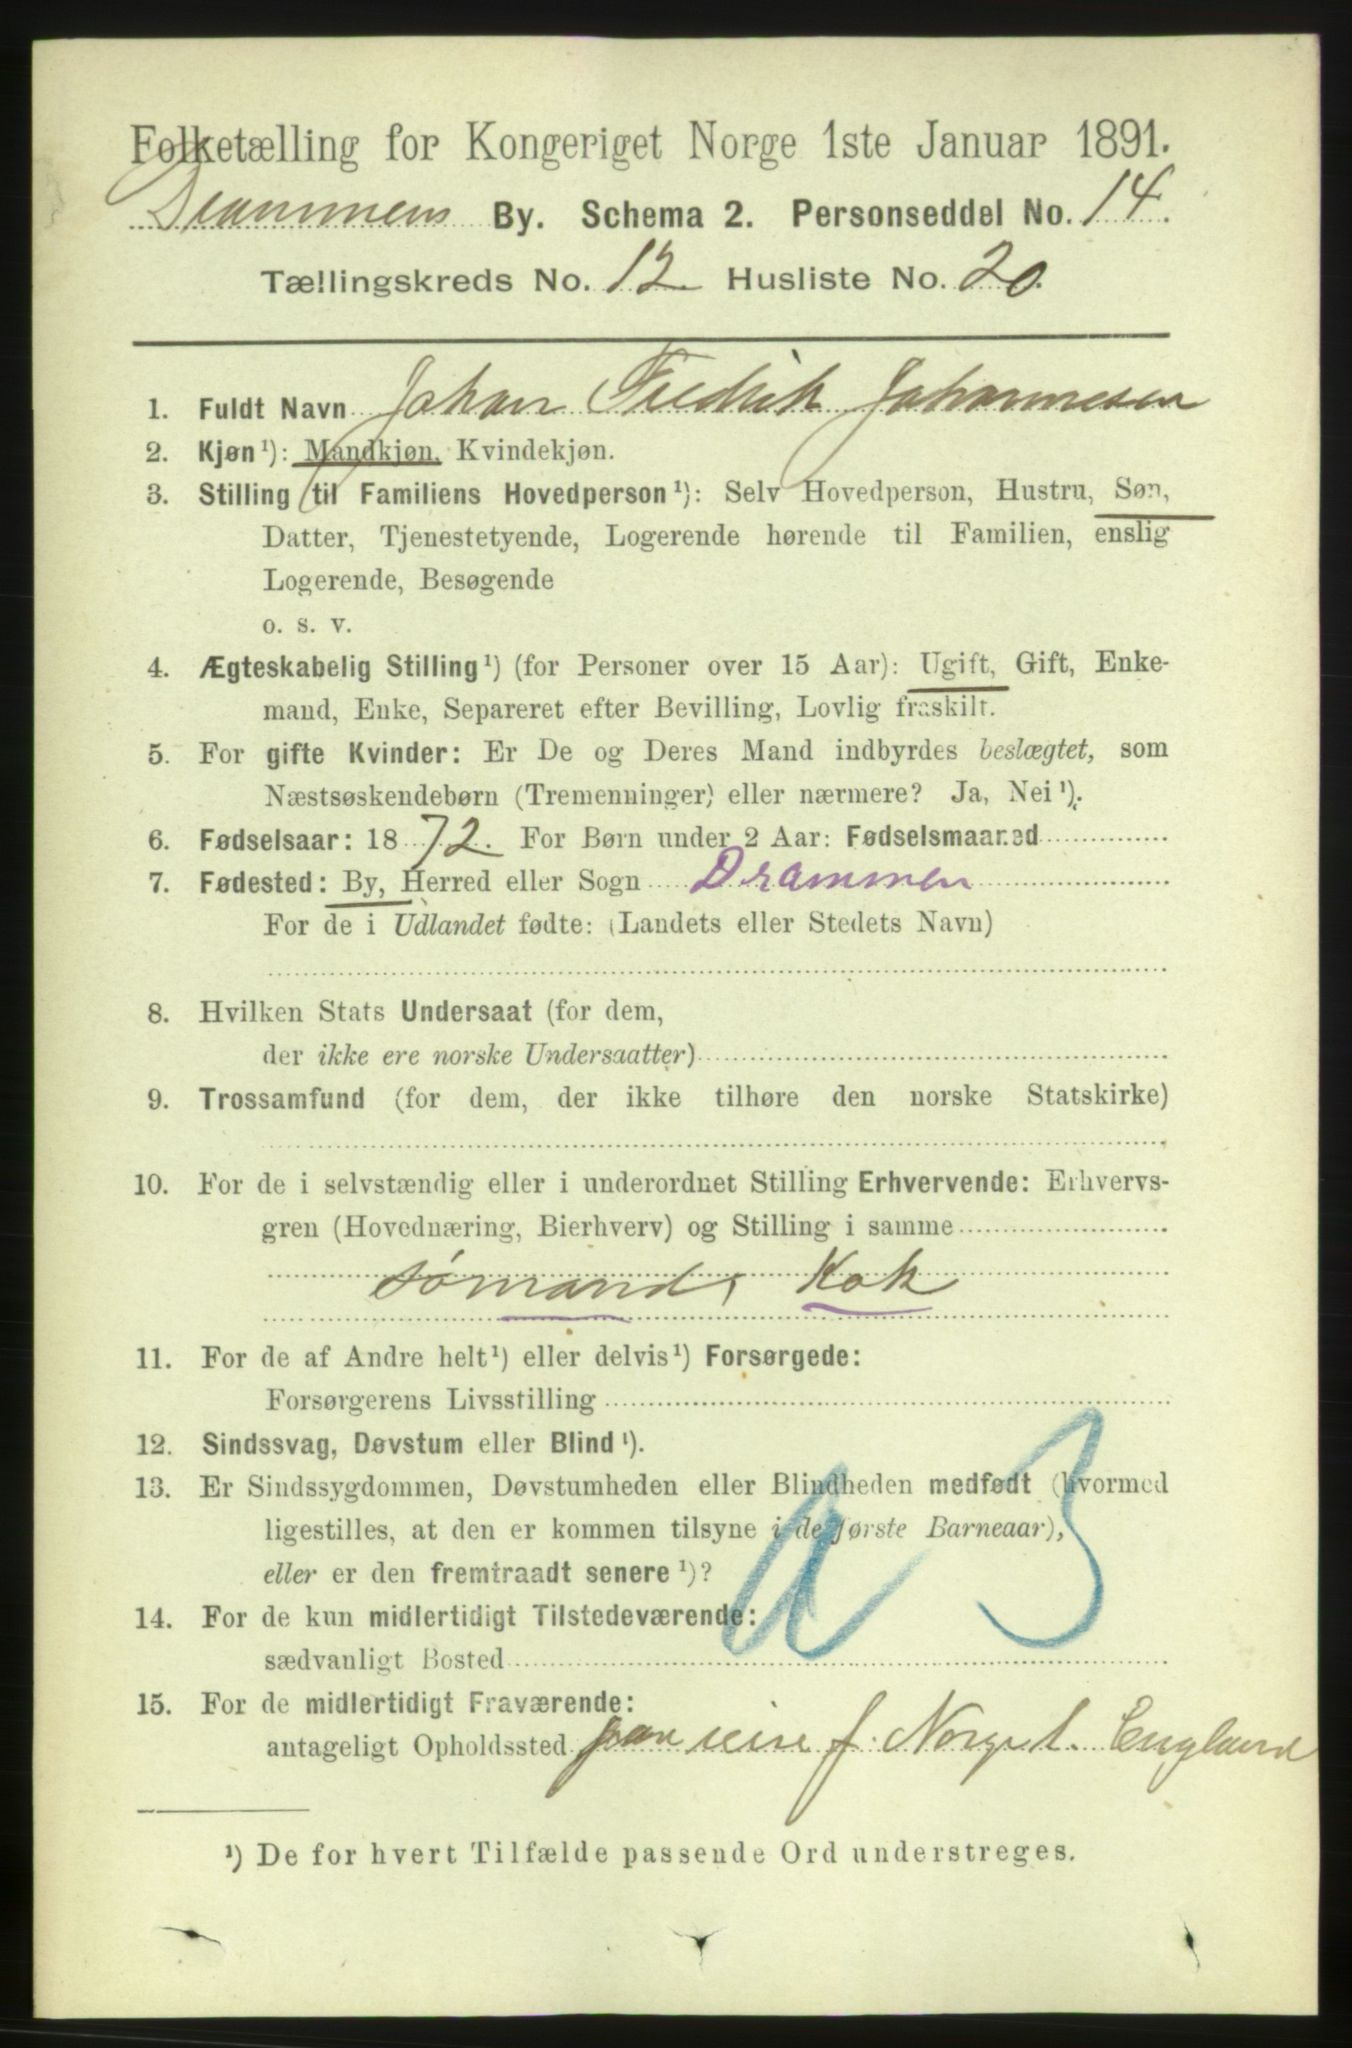 Folketælling for Kongeriget Norge 1ste Januar 1891.
Drammens By. Schema 2. Personseddel No. 14.
Tællingskreds No. 12. Husliste No. 20.
1. Fuldt Navn Johan Fredrik Johannesen
2. Kjøn¹): Mandkjøn, Kvindekjøn.
3. Stilling til Familiens Hovedperson¹): Selv Hovedperson, Hustru, Søn,
Datter, Tjenestetyende, Logerende hørende til Familien, enslig
Logerende, Besøgende
o. s. v.
4. Ægteskabelig Stilling¹) (for Personer over 15 Aar): Ugift, Gift, Enke-
mand, Enke, Separeret efter Bevilling, Lovlig fraskilt.
5. For gifte Kvinder: Er De og Deres Mand indbyrdes beslægtet, som
Næstsøskendebørn (Tremenninger) eller nærmere? Ja, Nei¹).
6. Fødselsaar: 1872. For Børn under 2 Aar: Fødselsmaaned
7. Fødested: By, Herred eller Sogn Drammen
For de i Udlandet fødte: (Landets eller Stedets Navn)
8. Hvilken Stats Undersaat (for dem,
der ikke ere norske Undersaatter)
9. Trossamfund (for dem, der ikke tilhøre den norske Statskirke)
10. For de i selvstændig eller i underordnet Stilling Erhvervende: Erhvervs-
gren (Hovednæring, Bierhverv) og Stilling i samme
Sømand, Kok
11. For de af Andre helt¹) eller delvis¹) Forsørgede:
Forsørgerens Livsstilling
12. Sindssvag, Døvstum eller Blind¹).
13. Er Sindssygdommen, Døvstumheden eller Blindheden medfødt (hvormed
ligestilles, at den er kommen tilsyne i de første Barneaar),
eller er den fremtraadt senere¹)?
a 3
14. For de kun midlertidigt Tilstedeværende:
sædvanligt Bosted
15. For de midlertidigt Fraværende:
antageligt Opholdssted paa reise f. Norge t. England
¹) De for hvert Tilfælde passende Ord understreges.